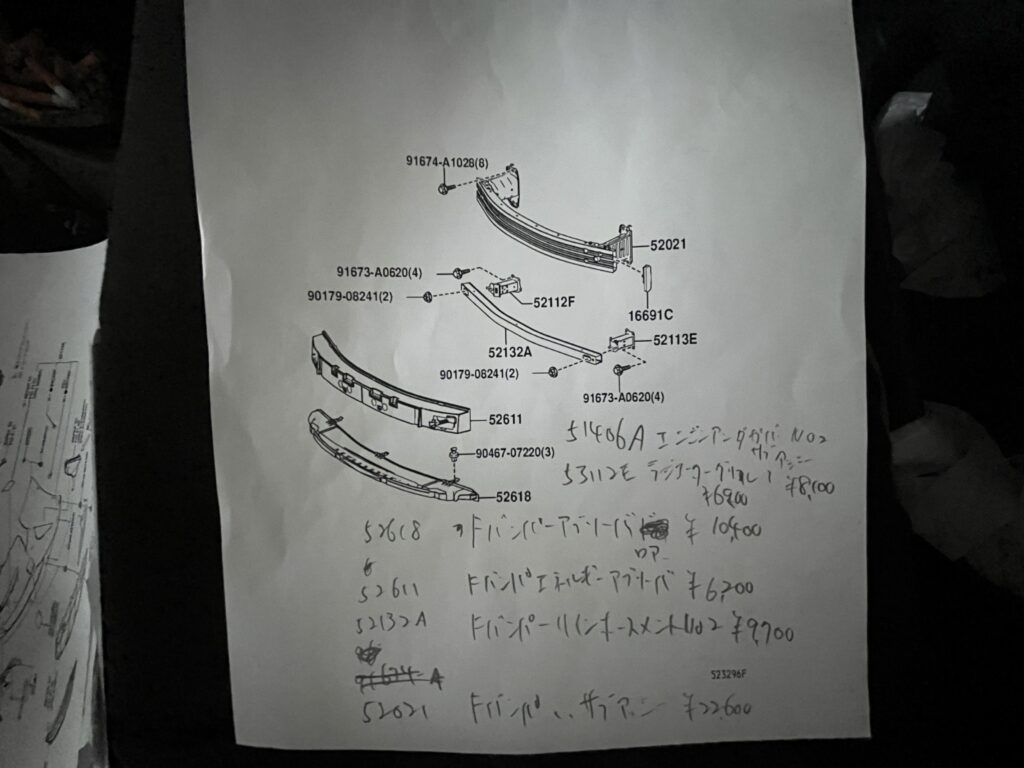 91674-A1028(8)
52021
91673-A0620(4)
90179-08241(2)
52112F
16691C
52132A
52113E
90179-08241(2)
91673-A0620(4)
52611
90467-07220(3)
52618
51406A エンジンアンダカバ NO2
サブアッシー
¥8,100
53112E ラジエーターグリル
52618 Fバンパーアブソーバ ¥10,400
ロアー
52611 Fバンパエネルギーアブソーバ ¥6,200
52132A Fバンパーリインホースメント NO2 ¥9,700
523296F
52021 Fバンパ サブアッシ ¥22,600